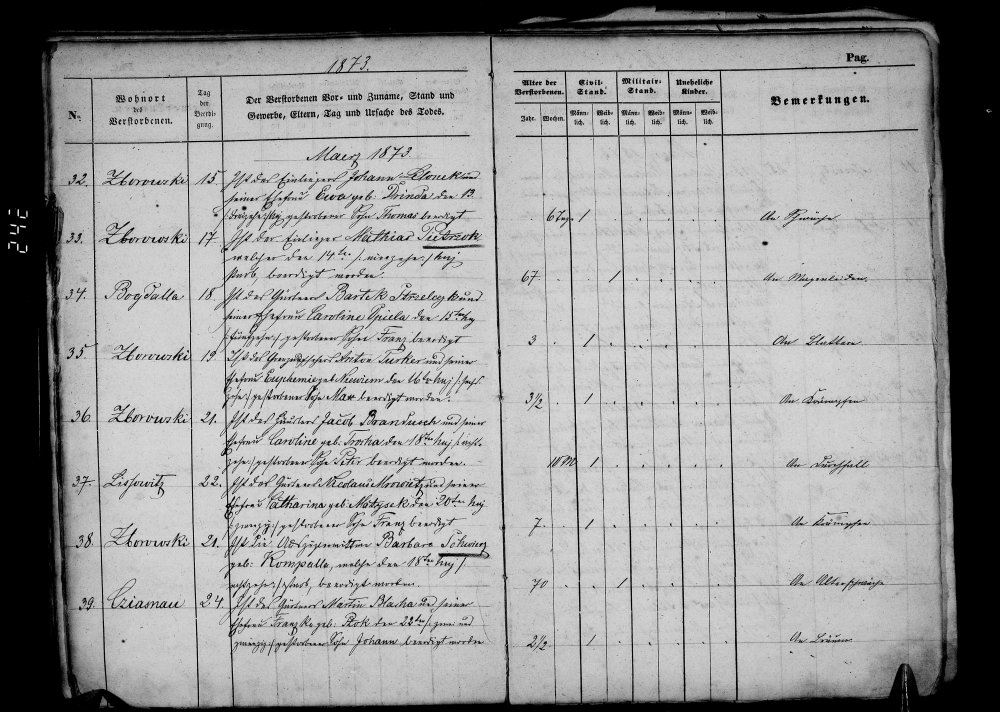 1873.
Pag.
N.
Wohnort des Verstorbenen.
Tag der Beerdigung.
Der Verstorbenen Vor- und Zuname, Stand und
Gewerbe, Eltern, Tag und Ursache des Todes.
Alter der Verstorbenen.
Civil-Stand.
Militair-Stand.
Uneheliche Kinder.
Bemerkungen.
Jahr. Wochen. Männlich. Weiblich. Männlich. Weiblich. Männlich. Weiblich.
Maerz 1873.
32. Zborowski 15. Ist des Einliegers Johann und
seiner Ehefrau Ewa geb: Drinda den 13
gestorbener Sohn Thomas beerdigt 6 Tage 1 An Schwäche
33. Zborowski 17. Ist der Einlieger Mathias Pietrzok
welcher den 14ten
starb beerdigt worden. 67 1 An Magenleiden
34. Bogdalla 18. Ist des Gärtners Bartek Strzelczyk und
seiner Ehefrau Caroline Spiela den 15ten huj
/:fünfzehn:/ gestorbener Sohn Franz beerdigt 3 1
35. Zborowski 19. Ist des Anton Turker und seiner
Ehefrau Euphemie geb: den 16ten huj /:sech
zehn:/ gestorbener Sohn Max beerdigt worden. 3 1/2 1 An Krämpfen
36. Zborowski 21. Ist des Häuslers Jacob Brandusch und seiner
Ehefrau Caroline geb: Troska den 18ten huj /:acht
zehn:/ gestorbener Sohn Peter beerdigt worden. 1 An Durchfall
37. Lissowitz 22. Ist des Gärtners Nicolaus und seiner
Ehefrau Catharina geb: Matysek den 20ten huj
/:zwanzig:/ gestorbener Sohn Franz beerdigt 7 1 An Krämpfen
38. Zborowski 21. Ist die Barbara
geb: Kompalla, welche den 18ten huj /:
achtzehn:/ starb, beerdigt worden. 70 1 An Altersschwäche
39. Cziasnau 24. Ist des Gärtners Martin Blacha und seiner
Ehefrau Franzka geb: Ptok den 22ten /:zwei und
zwanzig:/ gestorbener Sohn Johann beerdigt worden 2 1/2 1
242